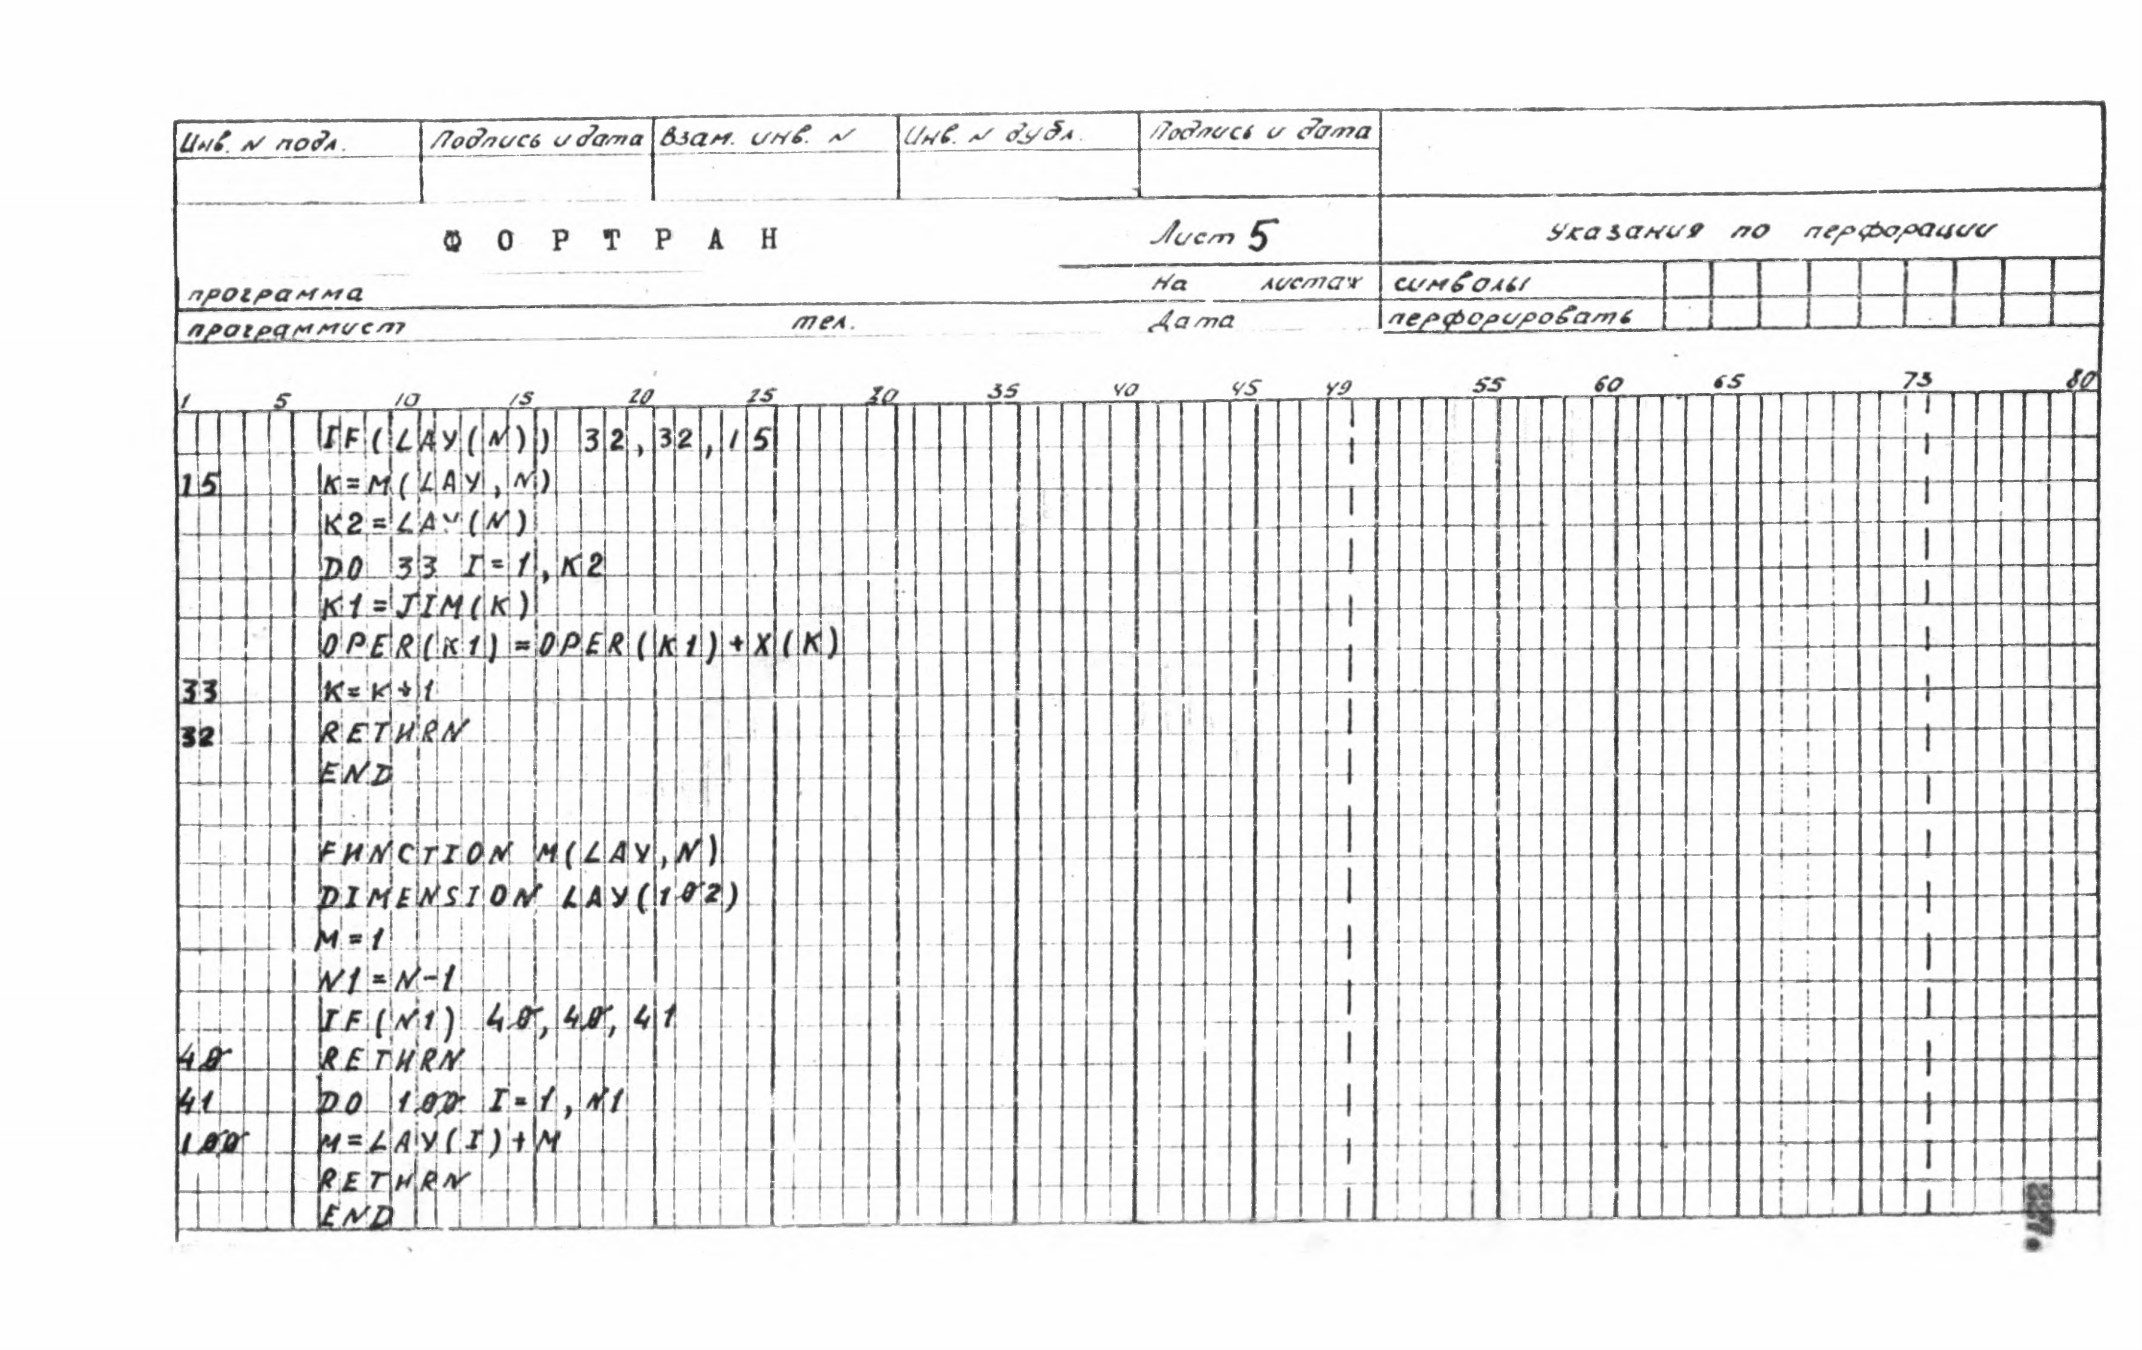 Инв. N подл. Подпись и дата Взам. инв. N Инв. N дубл. Подпись и дата
Ф О Р Т Р А Н Лист 5 Указания по перфорации
программа На листах символы
программист тел. Дата перфорировать
1 5 10 15 20 25 30 35 40 45 49 55 60 65 73 80
IF(LAY(N)) 32,32,15
15 K=M(LAY,N)
K2=LAY(N)
DO 33 I=1,K2
K1=JIM(K)
OPER(K1)=OPER(K1)+X(K)
33 K=K+1
32 RETHRN
END
FHNCTION M(LAY,N)
DIMENSION LAY(102)
M=1
N1=N-1
IF(N1) 40,40,41
40 RETHRN
41 DO 100 I=1,N1
100 M=LAY(I)+M
RETHRN
END